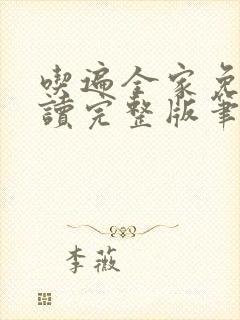 喫遍全家免
讀完整版筆
李薇